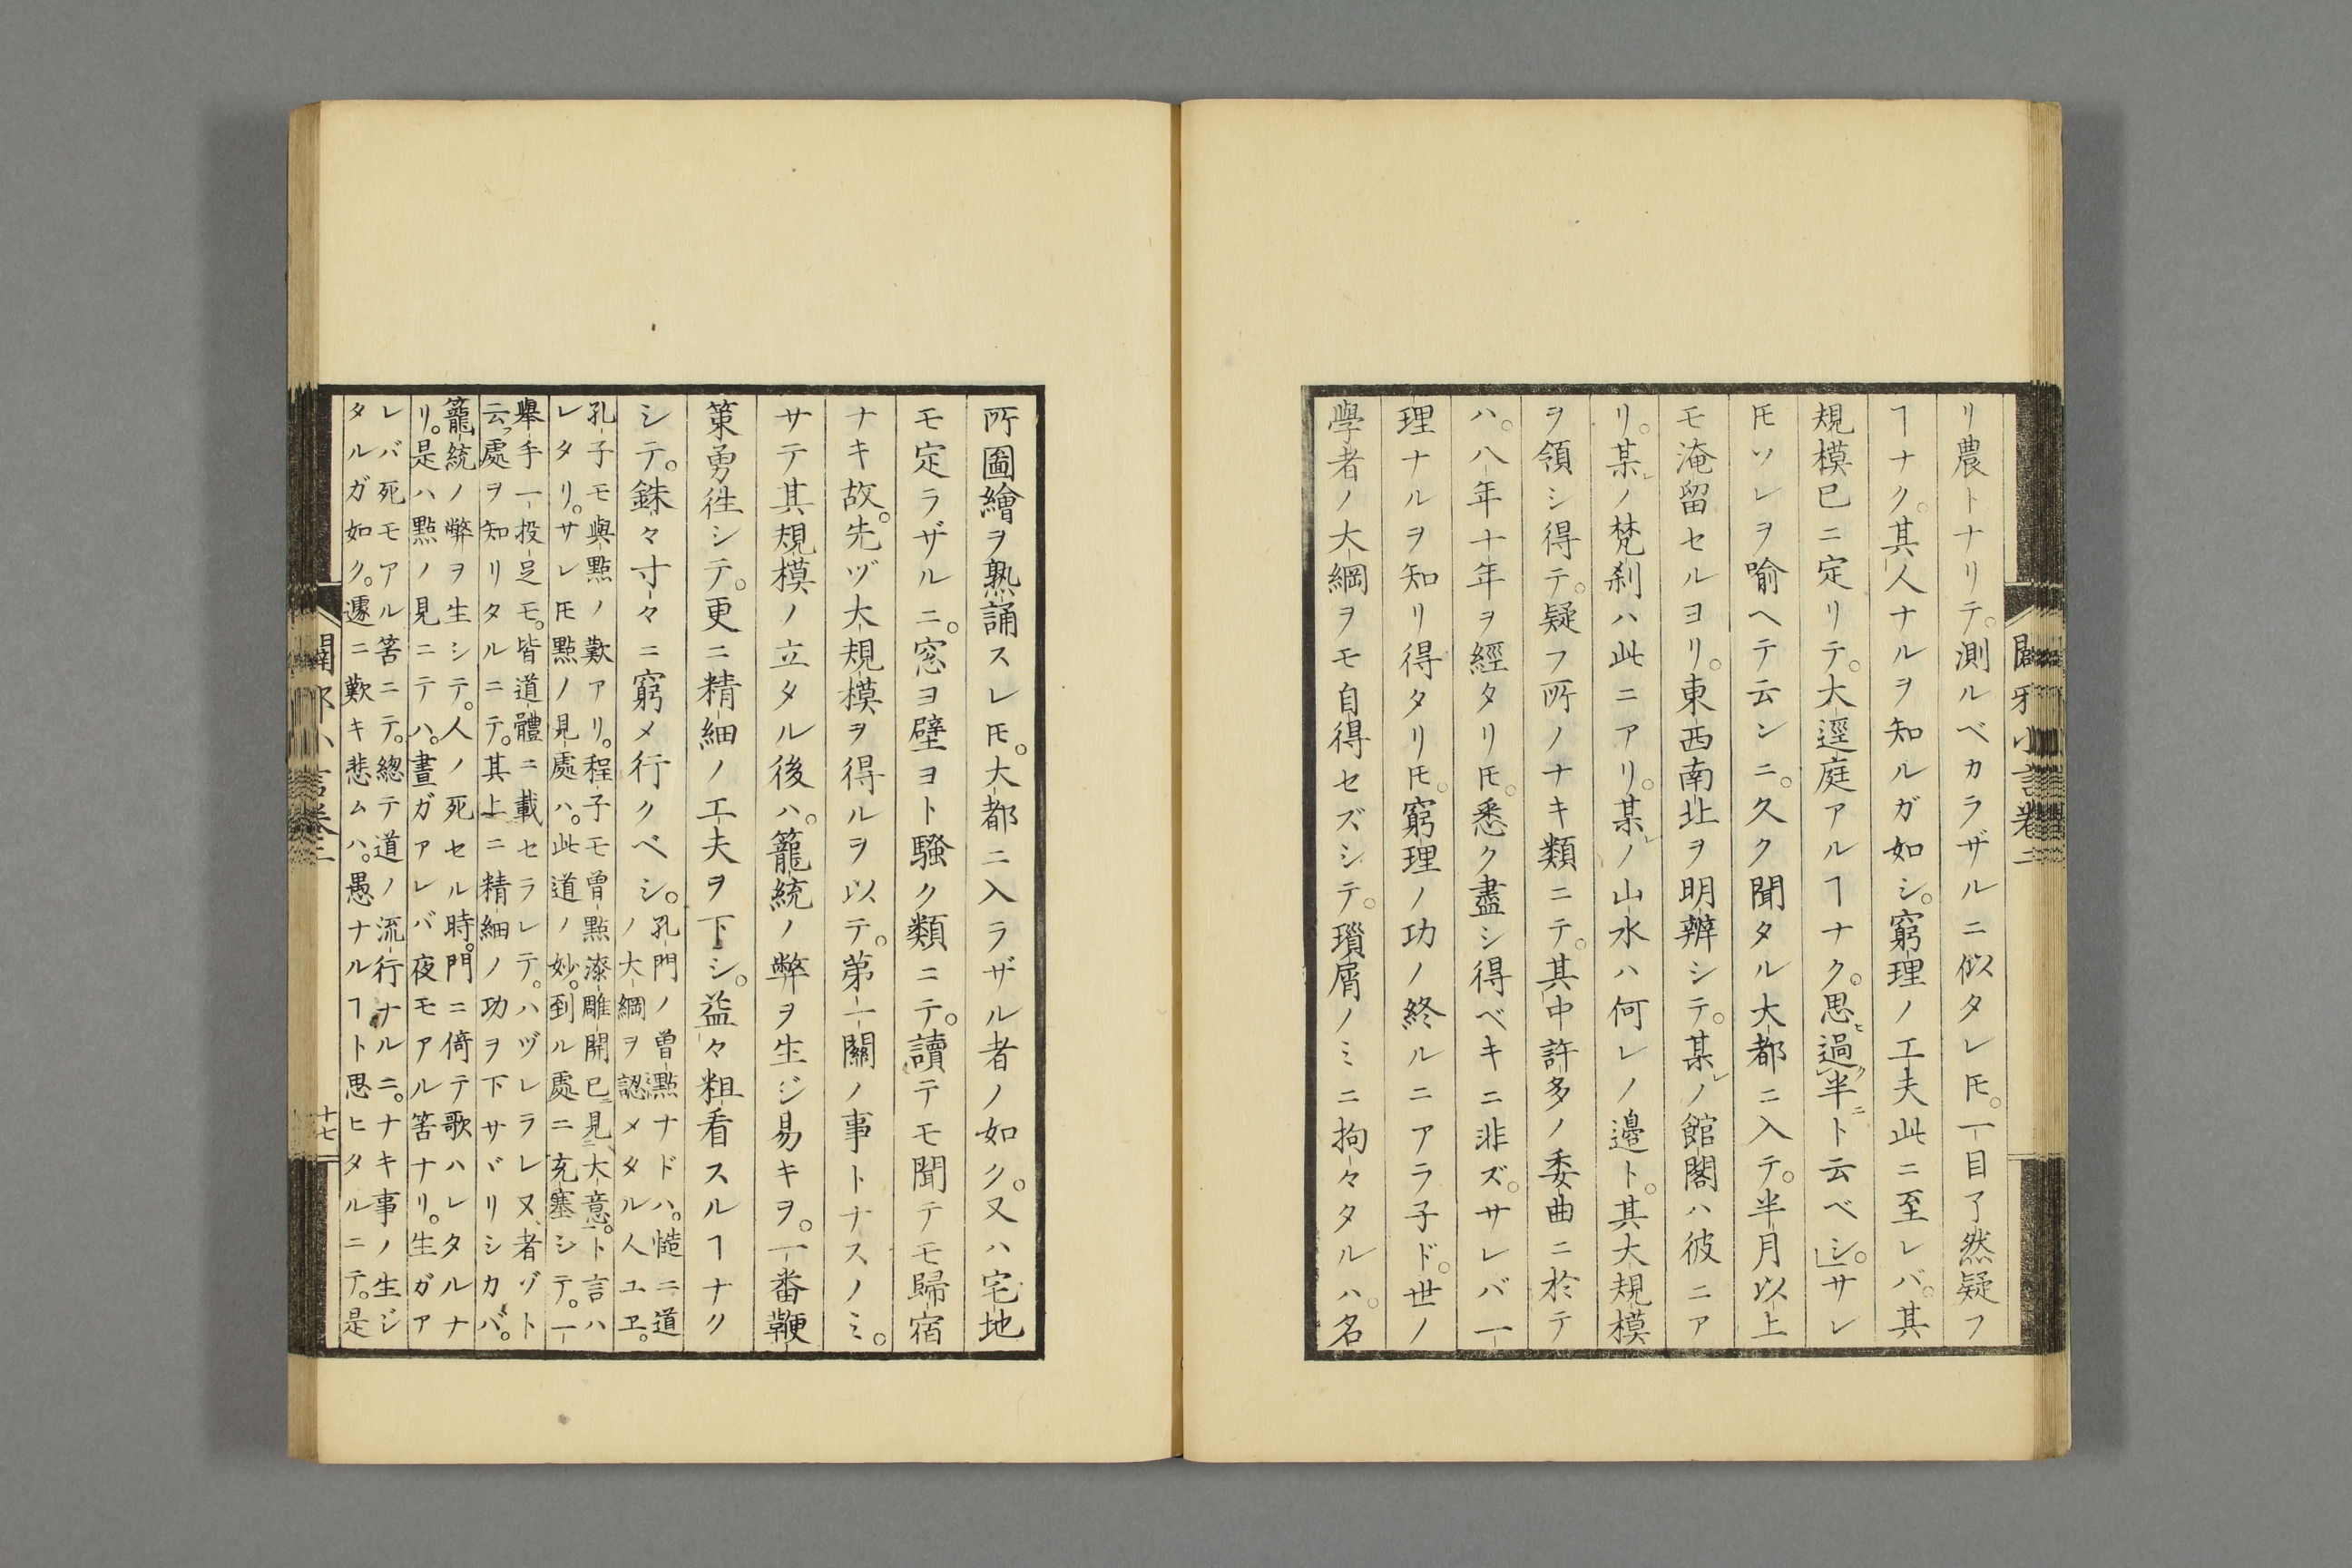 リ農トナリテ。測ルベカラザルニ似タレ𪜈。一目了然疑フ
ヿナク。其人ナルヲ知ルガ如シ。窮理ノ工夫此ニ至レバ。其
規模已ニ定リテ。大逕庭アルヿナク。思ヒ過クニ半ト云ベシ。サレ
𪜈ソレヲ喩ヘテ云ンニ。久ク聞タル大都ニ入テ。半月以上
モ淹留セルヨリ。東西南北ヲ明辨シテ。某レノ館閣ハ彼ニア
リ。某レノ梵刹ハ此ニアリ。某レノ山水ハ何レノ邊ト。其大規模
ヲ領シ得テ。疑フ所ノナキ類ニテ。其中許多ノ委曲ニ於テ
ハ。八年十年ヲ經タリ𪜈。悉ク盡シ得ベキニ非ズ。サレバ一
理ナルヲ知リ得タリ𪜈。窮理ノ功ノ終ルニアラ子ド。世ノ
學者ノ大綱ヲモ自得セズシテ。瑣屑ノミニ拘々タルハ。名
所圖繪ヲ熟誦スレ𪜈。大都ニ入ラザル者ノ如ク。又ハ宅地
モ定ラザルニ。窓ヨ壁ヨト騷ク類ニテ。讀テモ聞テモ歸宿
ナキ故。先ヅ大規模ヲ得ルヲ以テ。第一關ノ事トナスノミ。
サテ其規模ノ立タル後ハ。籠統ノ弊ヲ生ジ易キヲ。一番鞭
策勇徃シテ。更ニ精細ノ工夫ヲ下シ。益々粗看スルヿナク
シテ。銖々寸々ニ窮メ行クベシ。孔門ノ曽點ナドハ。慥ニ道
ノ大綱ヲ認メタル人ユヱ。
孔子モ與點ノ歎アリ。程子モ曽點漆雕開已見大意。ト言ハ
レタリ。サレ𪜈點ノ見處ハ。此道ノ妙。到ル處ニ充塞シテ。一
舉手一投足モ。皆道體ニ載セラレテ。ハヅレラレヌ者ゾト
云フ處ヲ知リタルニテ。其上ニ精細ノ功ヲ下サヾリシカバ。
籠統ノ弊ヲ生シテ。人ノ死セル時。門ニ倚テ歌ハレタルナ
リ。是ハ點ノ見ニテハ。晝ガアレバ夜モアル筈ナリ。生ガア
レバ死モアル筈ニテ。總テ道ノ流行ナルニ。ナキ事ノ生ジ
タルガ如ク。遽ニ歎キ悲ムハ。愚ナルヿト思ヒタルニテ。是
十七